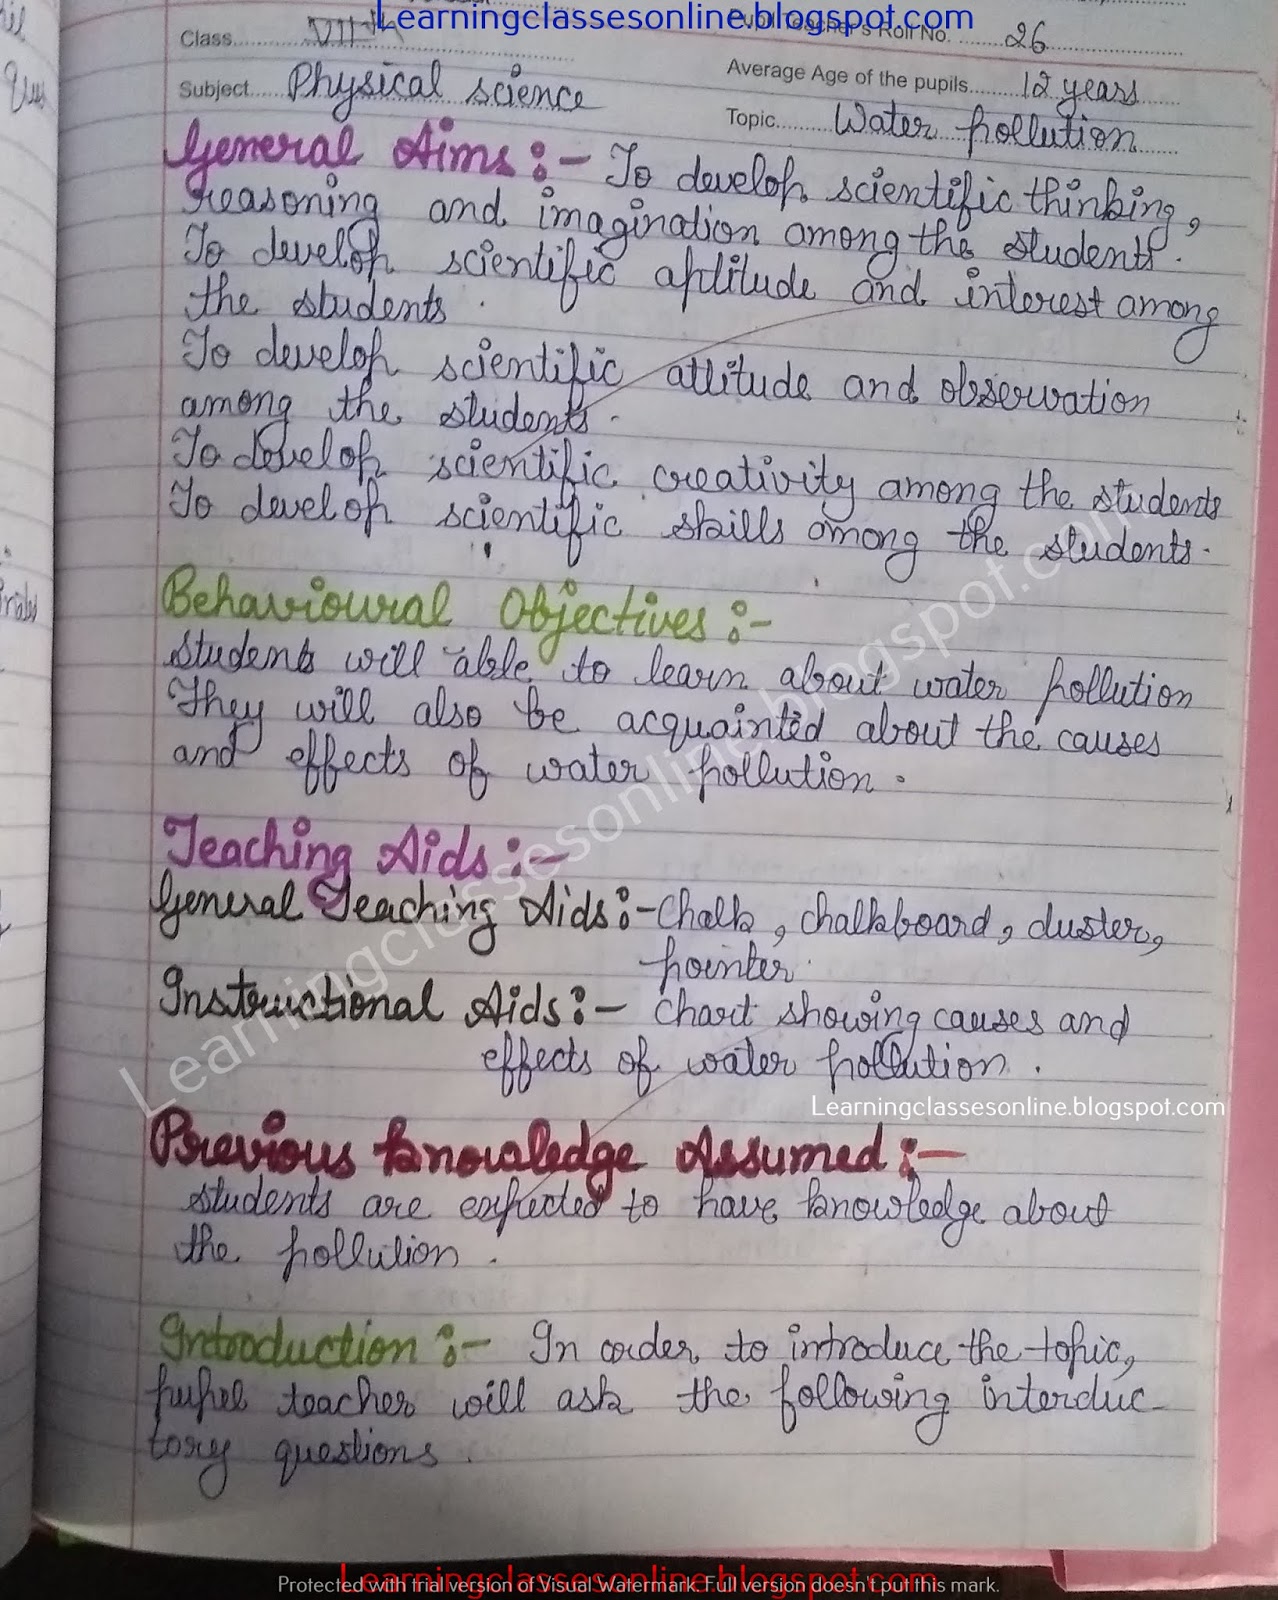 Learningclassesonline.blogspot.com
Class VIIth Pupil Teacher's Roll No. 26
Subject Physical science Average Age of the pupils 12 years
Topic Water pollution
General Aims :- To develop scientific thinking,
reasoning and imagination among the students.
To develop scientific aptitude and interest among
the students.
To develop scientific attitude and observation
among the students.
To develop scientific creativity among the students
To develop scientific skills among the students.
Behavioural Objectives :-
students will able to learn about water pollution
They will also be acquainted about the causes
and effects of water pollution.
Teaching Aids :-
General Teaching Aids :- Chalk, chalkboard, duster,
pointer.
Instructional Aids :- chart showing causes and
effects of water pollution.
Learningclassesonline.blogspot.com
Learningclassesonline.blogspot.com
Previous knowledge Assumed :-
students are expected to have knowledge about
the pollution.
Introduction :- In order to introduce the topic,
pupil teacher will ask the following interduc-
tory questions.
Learningclassesonline.blogspot.com
Protected with trial version of Visual Watermark. Full version doesn't put this mark.